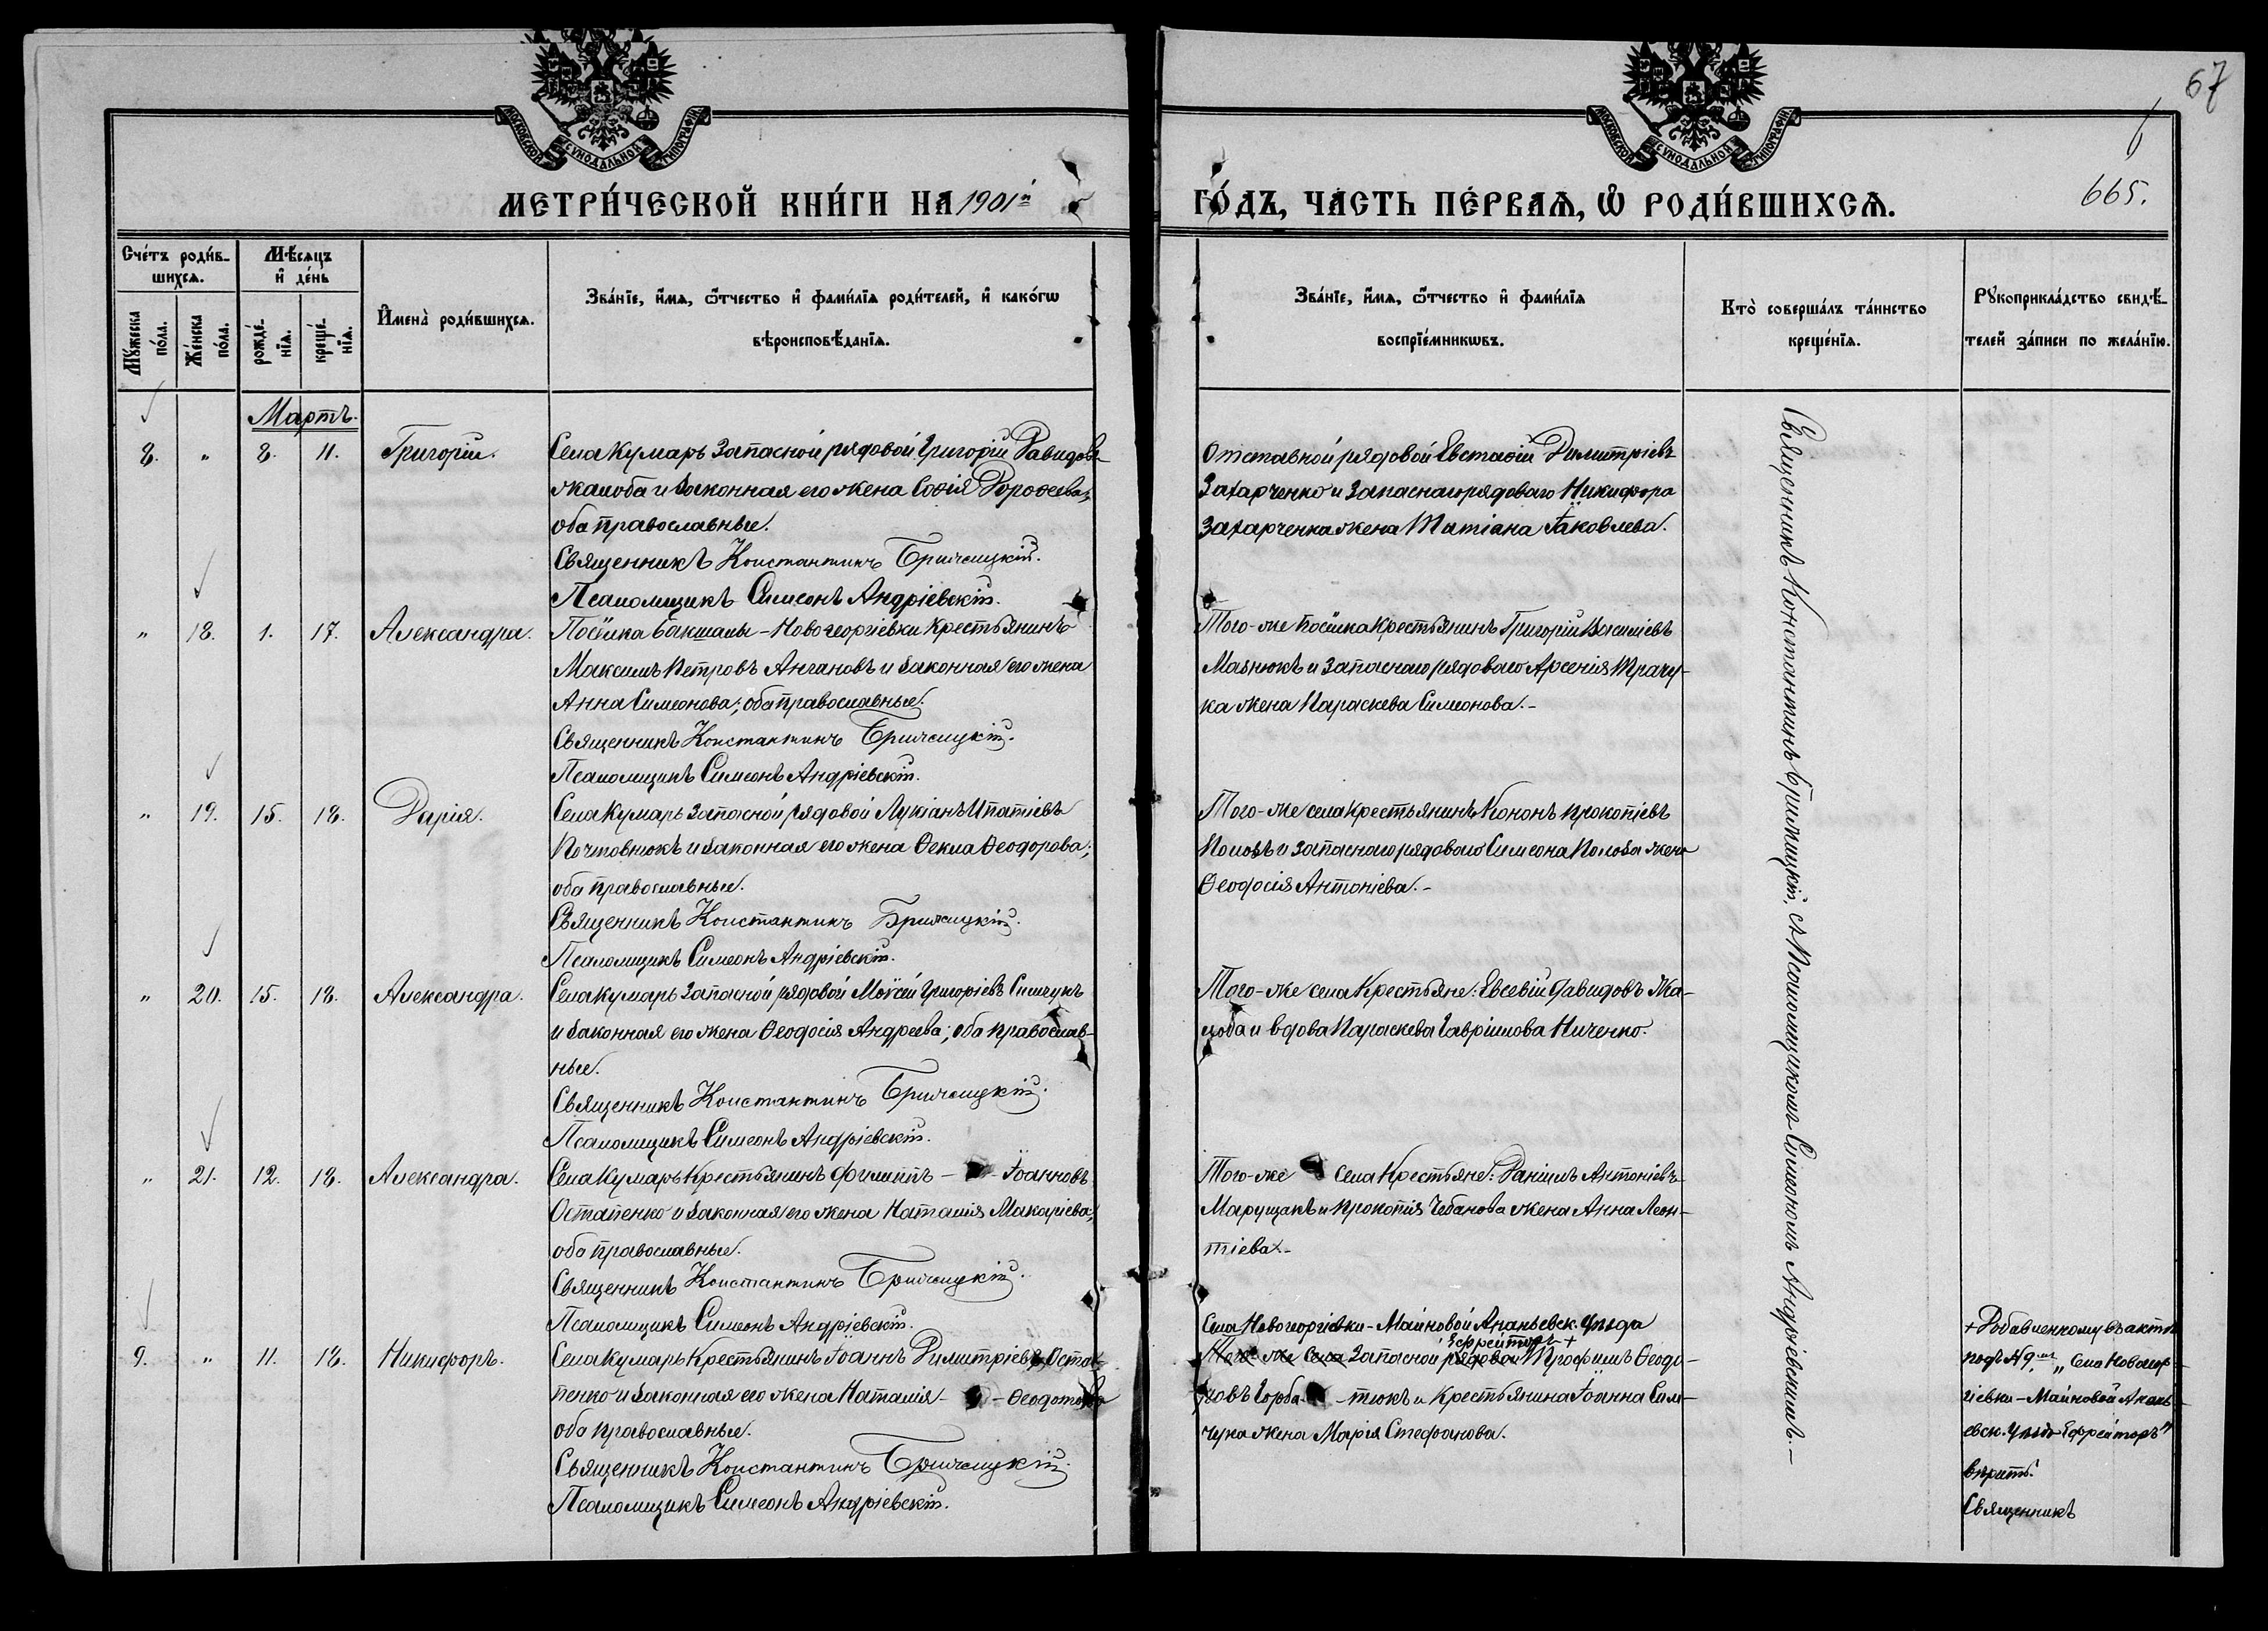 67
МОСКОВСКОЙ СѴНОДАЛЬНОЙ ТИПОГРАФІИ
МОСКОВСКОЙ СѴНОДАЛЬНОЙ ТИПОГРАФІИ
МЕТРИ́ЧЕСКОЙ КНИ́ГИ НА 1901й ГО́ДЪ, ЧА́СТЬ ПЕ́РВАѦ, Ѡ РОДИ́ВШИХСѦ.
665.
Сче́тъ роди́в-
шихсѧ.
Мꙋ́жеска по́ла.
Же́нска по́ла.
Мѣ́сѧцъ и де́нь
рожде́-
нїѧ.
креще́-
нїѧ.
Имена̀ роди́вшихсѧ.
Зва́нїе, и́мѧ, ѻ́тчество и фами́лїѧ роди́телей, и како́гѡ
вѣроисповѣ́данїѧ.
Зва́нїе, и́мѧ, ѻ́тчество и фами́лїѧ
воспрїе́мникѡвъ.
Кто̀ соверша́лъ та́инство
креще́нїѧ.
Рꙋкоприкла́дство свидѣ́-
телей за́писи по жела́нїю.
Мартъ.
8. " 8. 11. Григорій.
Села Кумаръ запасной рядовой Григорій Давидовъ
Жалоба и законная его жена Софія Дорофеева;
оба православные.
Священникъ Константинъ
Псаломщикъ Симеонъ Андріевскій.
Отставной рядовой Евстафій Димитріевъ
Захарченко и запаснаго рядоваго Никифора
Захарченка жена Татіана Іаковлева.
" 18. 1. 17. Александра.
Посёлка Бакшалы-Новогеоргіевки крестьянинъ
Максимъ Петровъ Ангановъ и законная его жена
Анна Симеонова; оба православные.
Священникъ Константинъ
Псаломщикъ Симеонъ Андріевскій.
Того-же посёлка крестьянинъ Григорій Василіевъ
и запаснаго рядоваго Арсенія Трачу-
ка жена Параскева Симеонова.-
" 19. 15. 18. Дарія.
Села Кумаръ запасной рядовой Лукіанъ Ипатіевъ
Почтовнюкъ и законная его жена Ѳекла Ѳеодорова;
оба православные.
Священникъ Константинъ
Псаломщикъ Симеонъ Андріевскій.
Того-же села крестьянинъ Кононъ Прокопіевъ
Поповъ и запаснаго рядоваго Симеона Попова жена
Ѳеодосія Антоніева.-
" 20. 15. 18. Александра.
Села Кумаръ запасной рядовой Моѵсей Григоріевъ Симчукъ
и законная его жена Ѳеодосія Андреева; оба православ-
ные.
Священникъ Константинъ
Псаломщикъ Симеонъ Андріевскій.
Того-же села крестьяне: Евсевій Давидовъ Жа-
лоба и вдова Параскева Гавріилова Ниченко.
" 21. 12. 18. Александра.
Села Кумаръ крестьянинъ Филиппъ - Іоанновъ
Остапенко и законная его жена Наталія Макаріева;
оба православные.
Священникъ Константинъ
Псаломщикъ Симеонъ Андріевскій.
Того-же села крестьяне: Даніилъ Антоніевъ
Марущакъ и Прокопія Чебанова жена Анна Леон-
тіева.-
9. " 11. 18. Никифоръ.
Села Кумаръ крестьянинъ Іоаннъ Димитріевъ Оста-
пенко и законная его жена Наталія - - Ѳеодотова
оба православные.
Священникъ Константинъ
Псаломщикъ Симеонъ Андріевскій.
Села Новогеоргіевки-Майновой Ананьевск. уѣзда
Ефрейторъ +
Того-же села запасной рядовой Трофимъ Ѳеодо-
ровъ -тюкъ и крестьянина Іоанна Сим-
чука жена Марія Стефанова.
Священникъ Константинъ съ Псаломщикомъ Симеономъ Андріевскимъ.-
+ Добавленному въ актѣ
подъ № 9м "Села Новогеор-
гіевки-Майновой Анань-
евск. уѣзда Ефрейторъ"
вѣрить.
Священникъ